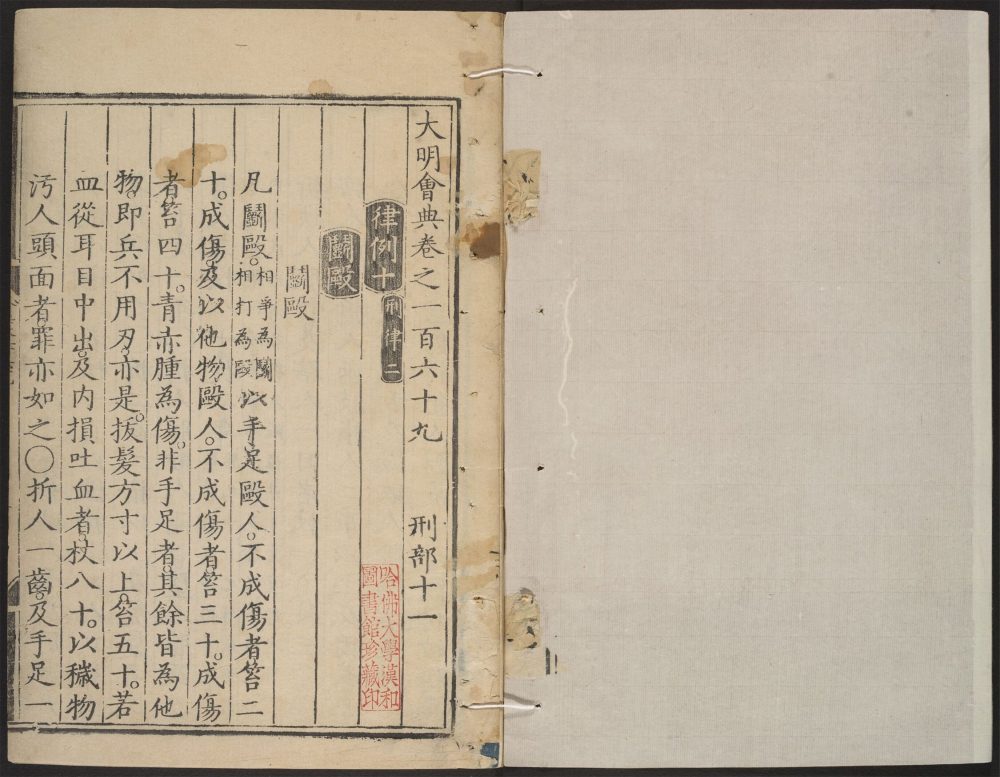 大明會典卷之一百六十九 刑部十一
律例十 刑律二
鬭毆
鬭毆
凡鬭毆。相爭為鬭相打為毆以手足毆人。不成傷者笞二
十。成傷。及以他物毆人。不成傷者笞三十。成傷
者笞四十。青赤腫為傷。非手足者。其餘皆為他
物。即兵不用刃。亦是。拔髮方寸以上。笞五十。若
血從耳目中出。及內損吐血者。杖八十。以穢物
汚人頭面者罪亦如之〇折人一齒。及手足一
哈佛大學漢和
圖書館珍藏印